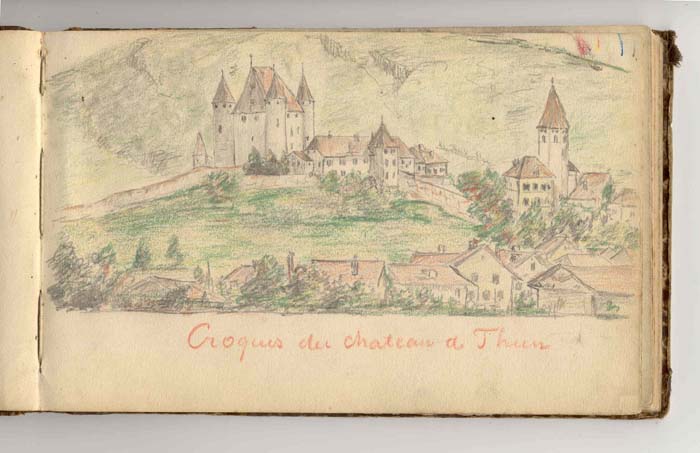 Croquis du chateau d Thun